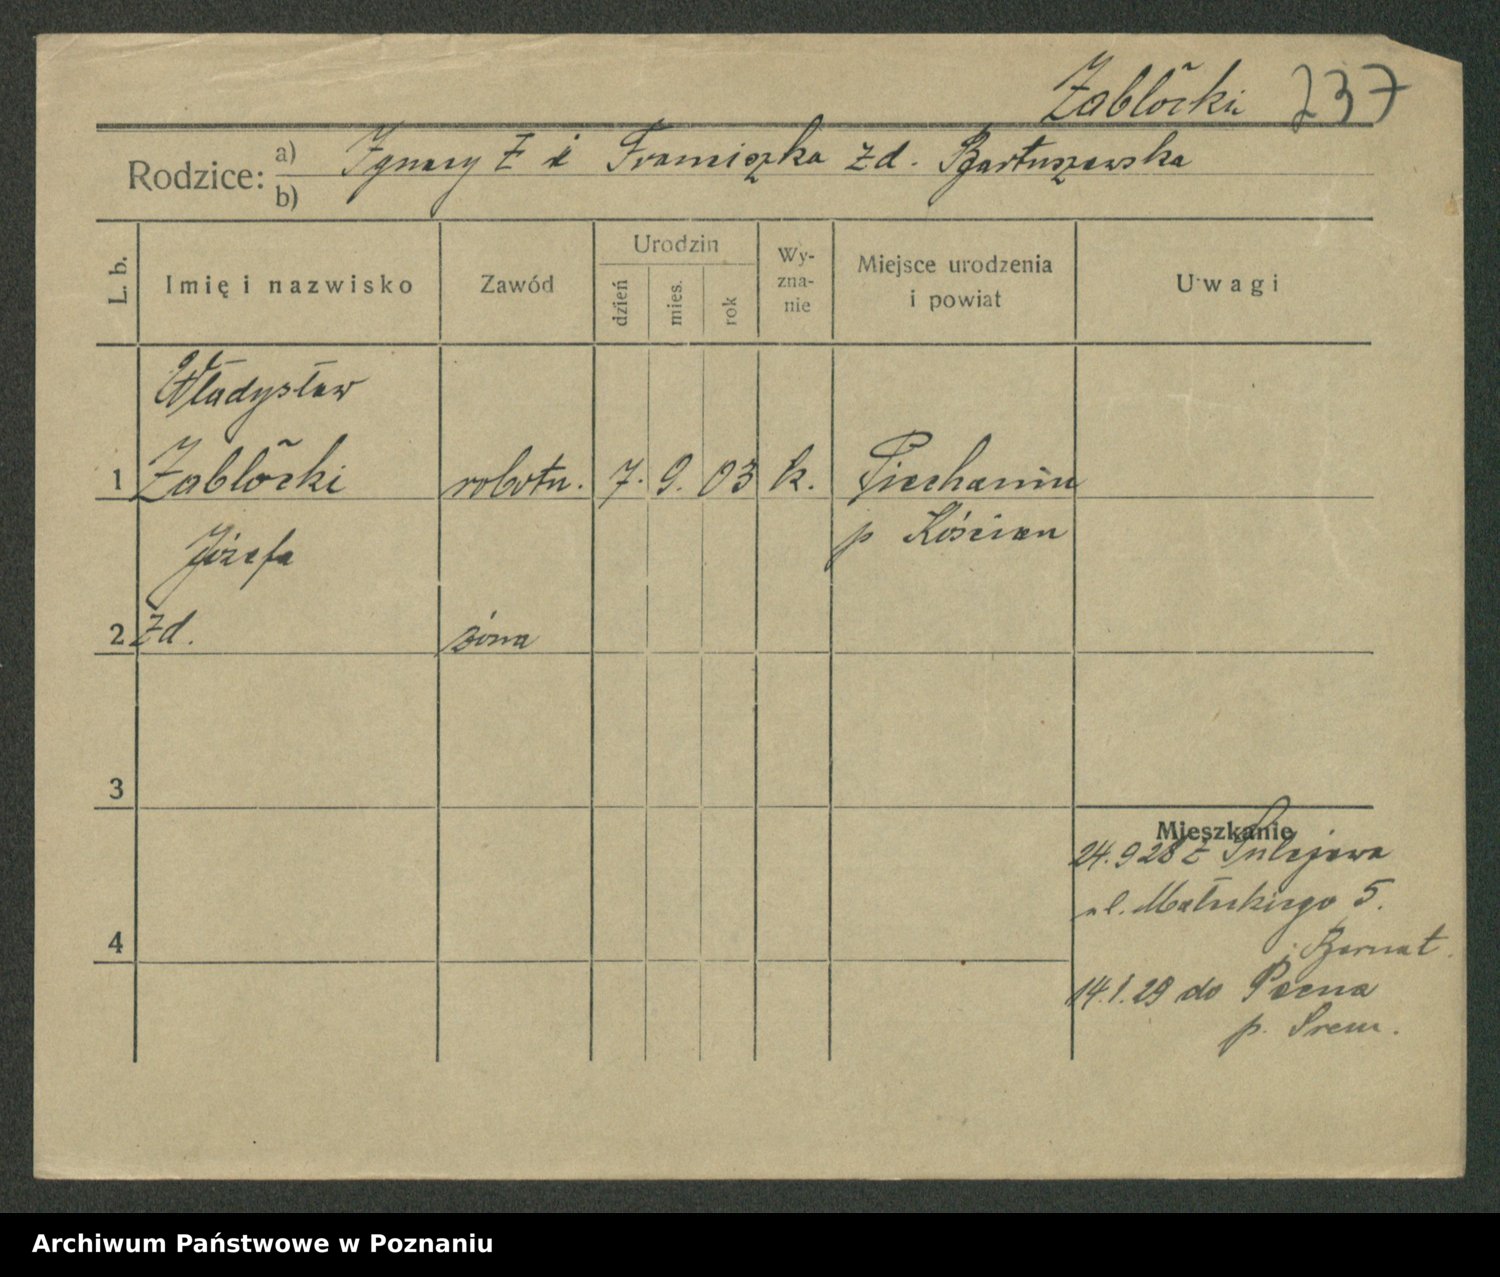 Zabłocki 237
Rodzice: a) Ignacy Z i Franciszka zd. Bartuszewska
b)
L. b. Imię i nazwisko Zawód Urodzin dzień mies. rok Wy-zna-nie Miejsce urodzenia i powiat Uwagi
Władysław
1 Zabłocki robotn. 7. 9. 03 k. Piechanin
p Kościan
Józefa
2 zd. żona
3
Mieszkanie
24.9 28 z Sulejewa
ul. 5.
4
Bernat.
14.1.29 do
p. Śrem.
Archiwum Państwowe w Poznaniu